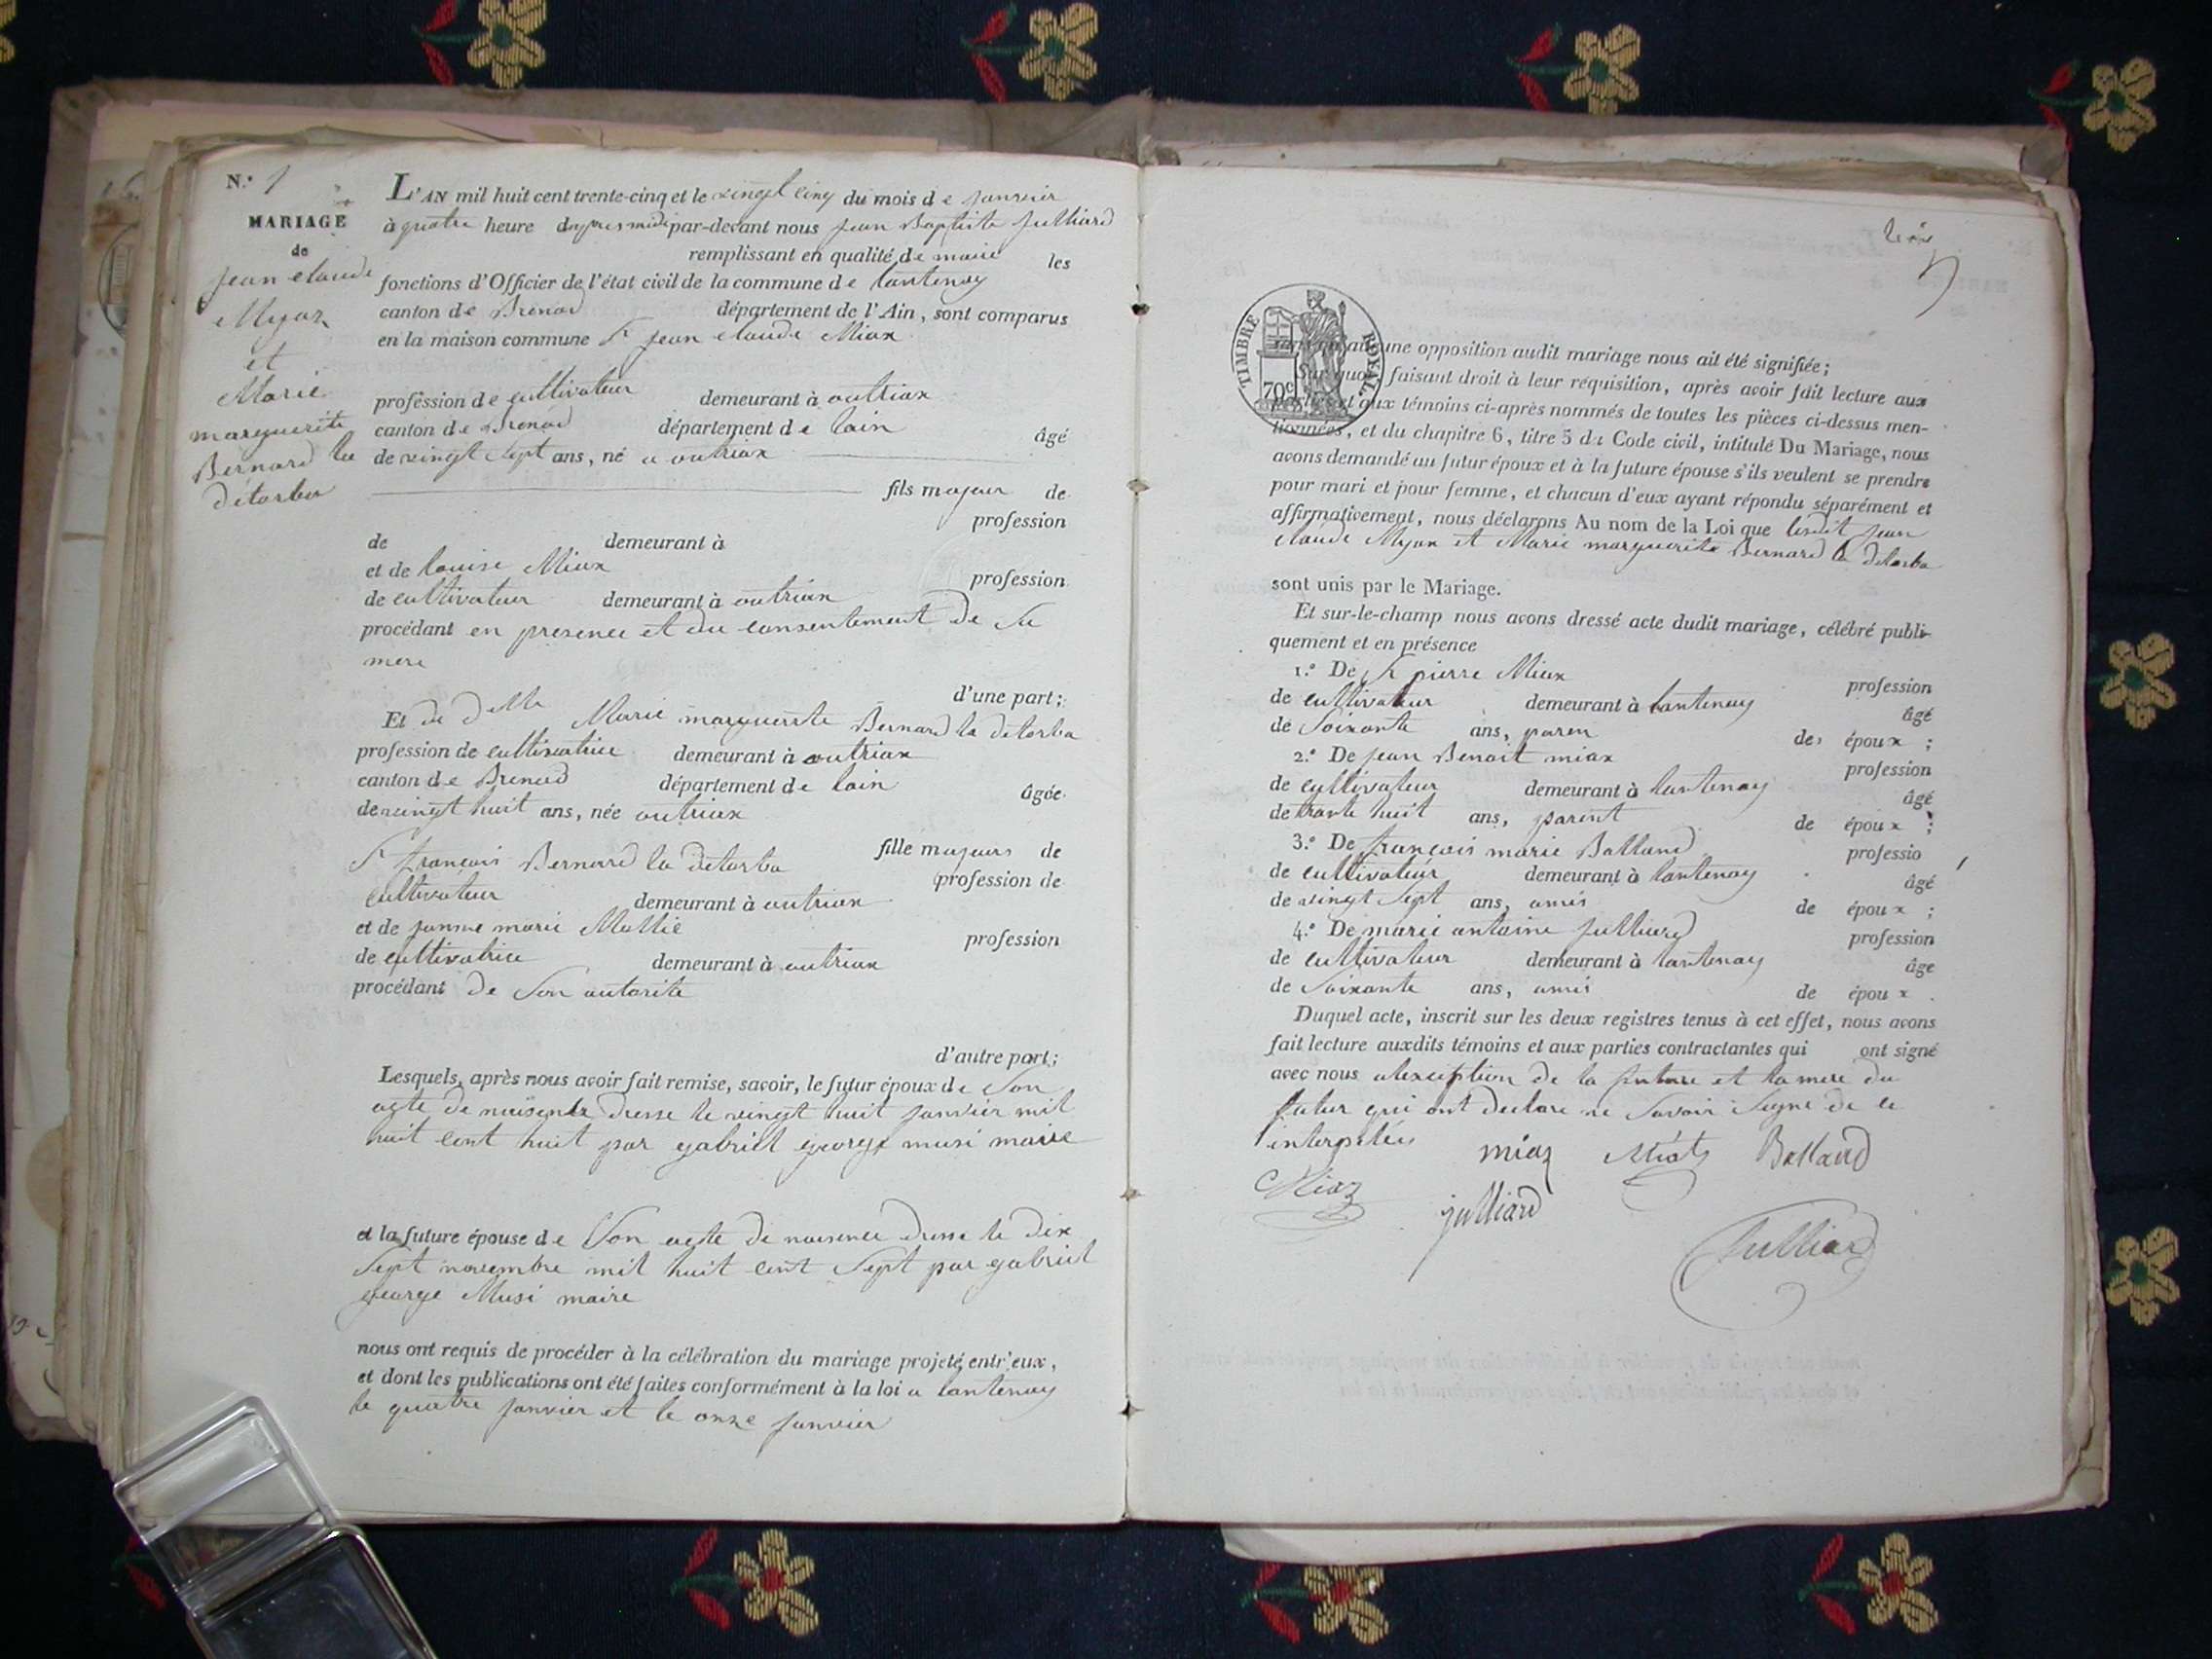 N.º 1
MARIAGE
de
jean claude
Myax
et
Marie
marguerite
Bernard la
détorba
L'AN mil huit cent trente-cinq et le vingt cinq du mois de janvier
à quatre heure dapres midi par-devant nous jean Baptiste Julliard
remplissant en qualité de maire les
fonctions d'Officier de l'état civil de la commune de lantenay
canton de Brenod département de l'Ain, sont comparus
en la maison commune Sr jean claude Miax
profession de cultivateur demeurant à outriax
canton de Brenod département de lain âgé
de vingt sept ans, né a outriax
fils majeur de
profession
de demeurant à
et de louise Miax profession
de cultivateur demeurant à outriax
procédant en presence et du consentement de sa
mere
d'une part;
Et de dlle Marie marguerite Bernard la detorba
profession de cultivatrice demeurant à outriax
canton de Brenod département de lain âgée
de vingt huit ans, née outriax
fille majeure de
Sr françois Bernard la detorba profession de
cultivateur demeurant à outriax
et de janne marie Mallie profession
de cultivatrice demeurant à outriax
procédant de son autorite
d'autre part;
Lesquels, après nous avoir fait remise, savoir, le futur époux de son
acte de naisence dresse le vingt huit janvier mil
huit cent huit par gabriel george musi maire
et la future épouse de son acte de naisence dresse le dix
sept novembre mil huit cent sept par gabriel
george Musi maire
nous ont requis de procéder à la célébration du mariage projeté entr'eux,
et dont les publications ont été faites conformément à la loi a lantenay
le quatre janvier et le onze janvier
TIMBRE ROYAL
70c
aucune opposition audit mariage nous ait été signifiée;
Sur quoi faisant droit à leur réquisition, après avoir fait lecture aux
parties et aux témoins ci-après nommés de toutes les pièces ci-dessus men-
tionnées, et du chapitre 6, titre 5 du Code civil, intitulé Du Mariage, nous
avons demandé au futur époux et à la future épouse s'ils veulent se prendre
pour mari et pour femme, et chacun d'eux ayant répondu séparément et
affirmativement, nous déclarons Au nom de la Loi que lesdit jean
claude Myax et Marie marguerite Bernard la detorba
sont unis par le Mariage.
Et sur-le-champ nous avons dressé acte dudit mariage, célébré publi-
quement et en présence
1.º De Sr pierre Miax profession
de cultivateur demeurant à lantenay âgé
de soixante ans, paren des époux;
2.º De jean Benoit miax profession
de cultivateur demeurant à lantenay âgé
de trante huit ans, parent de époux;
3.º De françois marie Balland professio
de cultivateur demeurant à lantenay âgé
de vingt sept ans, amis de époux;
4.º De marie antoine julliard profession
de cultivateur demeurant à lantenay âge
de soixante ans, amis de époux.
Duquel acte, inscrit sur les deux registres tenus à cet effet, nous avons
fait lecture auxdits témoins et aux parties contractantes qui ont signé
avec nous alexception de la future et la mere du
futur qui ont declare ne savoir signe de ce
interpelées
miaz Miats Balland
Miaz julliard
Julliard